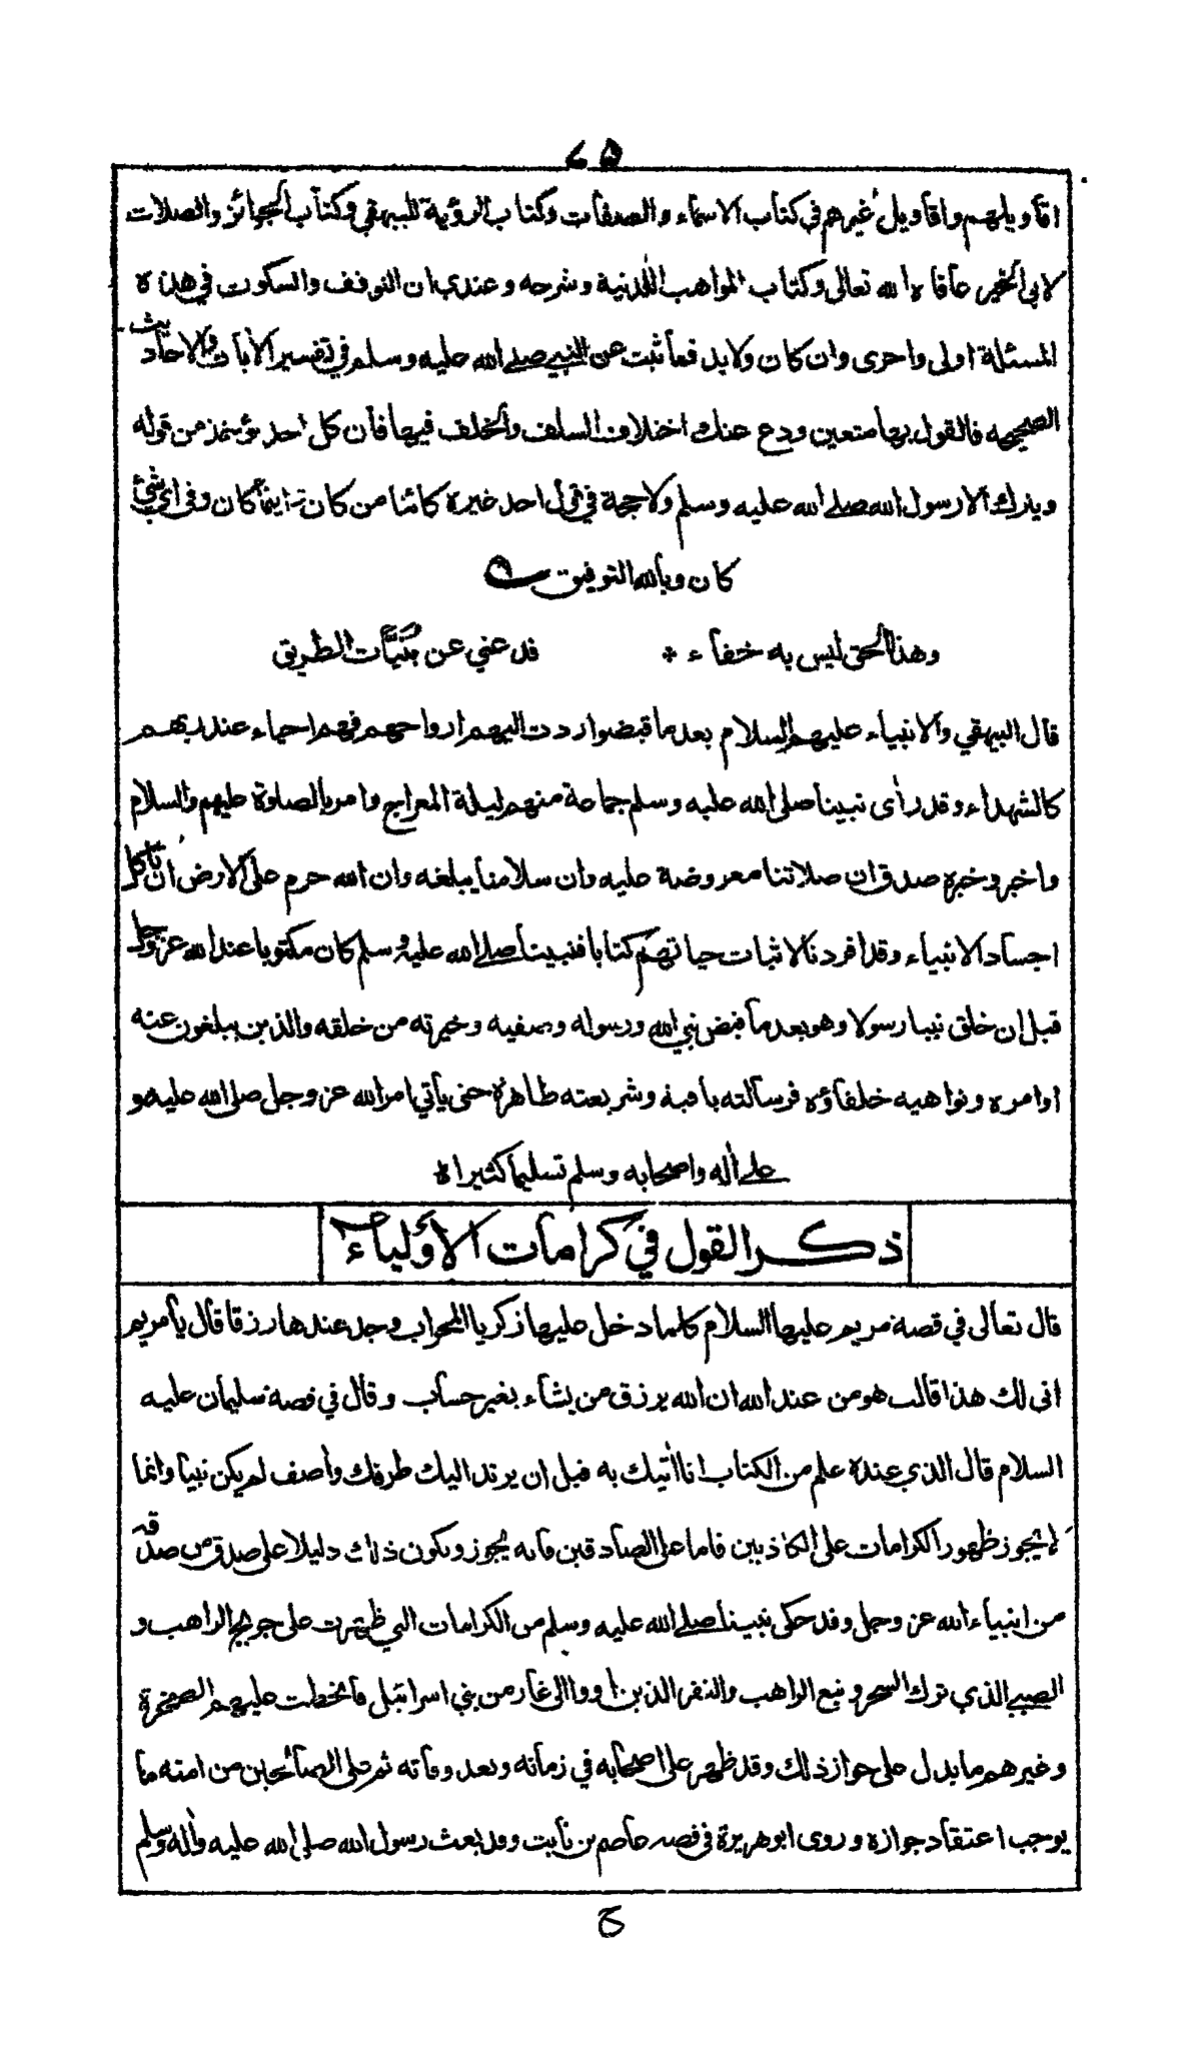 ٤٥
اقاويلهم واقاويل غيرهم في كتاب الاسماء والصفات وكتاب الرؤية للبيهقي وكتاب الجوائز والصلات
لابي الخير عافاه الله تعالى وكتاب المواهب اللدنية وشرحه وعندي ان التوقف والسكوت في هذه
المسئلة اولى واحرى وان كان ولابد فما ثبت عن النبي صلے الله عليه وسلم في تفسير الاٰيات والاحاديث
الصحيحه فالقول بها متعين ودع عنك اختلاف السلف والخلف فيها فان كل احد يؤخذ من قوله
ويترك الا رسول الله صلے الله عليه وسلم ولا حجة في قول احد غيره كائنا من كان اينما كان وفي اي شئ
كان وبالله التوفيق
وهذا الحق ليس به خفاء * فدعني عن بُنَيَّات الطريق
قال البيهقي والانبياء عليهم السلام بعد ما قبضوا ردت اليهم ارواحهم فهم احياء عند ربهم
كالشهداء وقد رأى نبينا صلى الله عليه وسلم جماعة منهم ليلة المعراج وامر بالصلوة عليهم والسلام
واخبر وخبره صدق ان صلاتنا معروضة عليه وان سلامنا يبلغه وان الله حرم على الارض ان تأكل
اجساد الانبياء وقد افردنا لاثبات حياتهم كتابا فنبينا صلے الله عليه وسلم كان مكتوبا عند الله عز وجل
قبل ان خلق نبيا رسولا وهو بعد ما قبض نبي الله ورسوله وصفيه وخيرته من خلقه والذين يبلغون عنه
اوامره ونواهيه خلفاؤه فرسالته باقية وشريعته ظاهرة حتى يأتي امر الله عز وجل صلى الله عليه و
علے اٰله واصحابه وسلم تسليما كثيرا
ذكر القول في كرامات الأولياء
قال تعالى في قصة مريم عليها السلام كلما دخل عليها زكريا المحراب وجد عندها رزقا قال يا مريم
انى لك هذا قالت هو من عند الله ان الله يرزق من يشاء بغير حساب وقال في قصة سليمان عليه
السلام قال الذي عنده علم من الكتاب انا اٰتيك به قبل ان يرتد اليك طرفك واٰصف لم يكن نبيا وانما
لا يجوز ظهور الكرامات على الكاذبين فاما على الصادقين فانه يجوز ويكون ذلك دليلا على صدق من صدقه
من انبياء الله عز وجل وقد حكى نبينا صلے الله عليه وسلم من الكرامات التي ظهرت على جريج الراهب و
الصبي الذي ترك السحر وتبع الراهب والنفر الذين اووا الى غار من بني اسرائيل فانحطت عليهم الصخرة
وغيرهم ما يدل على جواز ذلك وقد ظهر على اصحابه في زمانه وبعد وفاته ثم على الصالحين من امته ما
يوجب اعتقاد جوازه وروى ابو هريرة في قصة عاصم بن ثابت وقد بعث رسول الله صلى الله عليه واٰله وسلم
ح